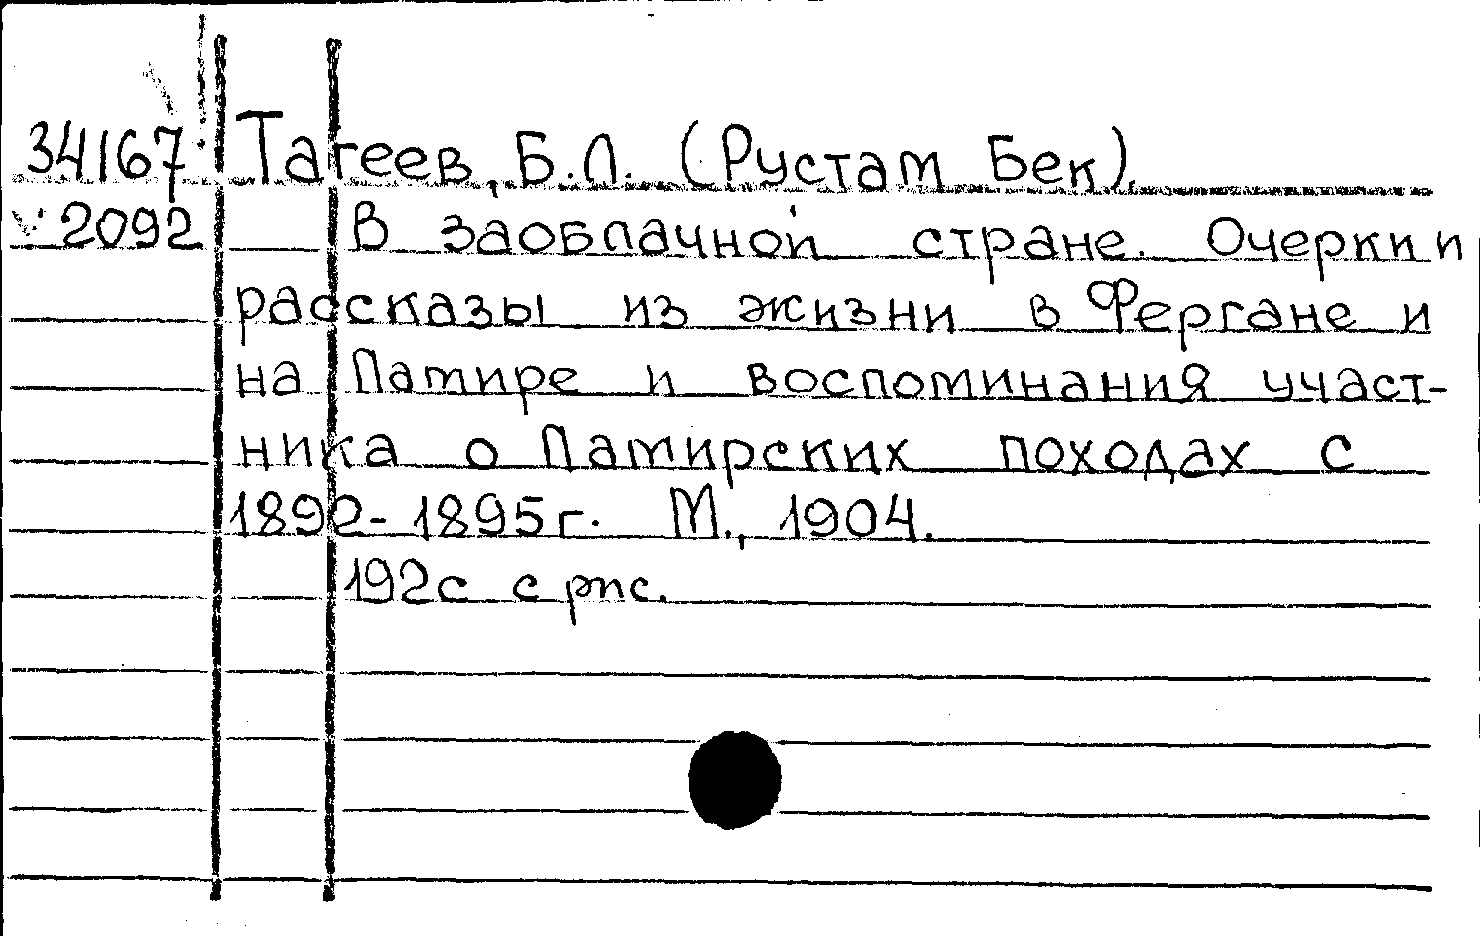 34167 Тагеев, Б.Л. (Рустам Бек).
2092 В заоблачной стране. Очерки и
рассказы из жизни в Фергане и
на Памире и воспоминания участ-
ника о Памирских походах с
1892-1895г. М., 1904.
192с с рис.